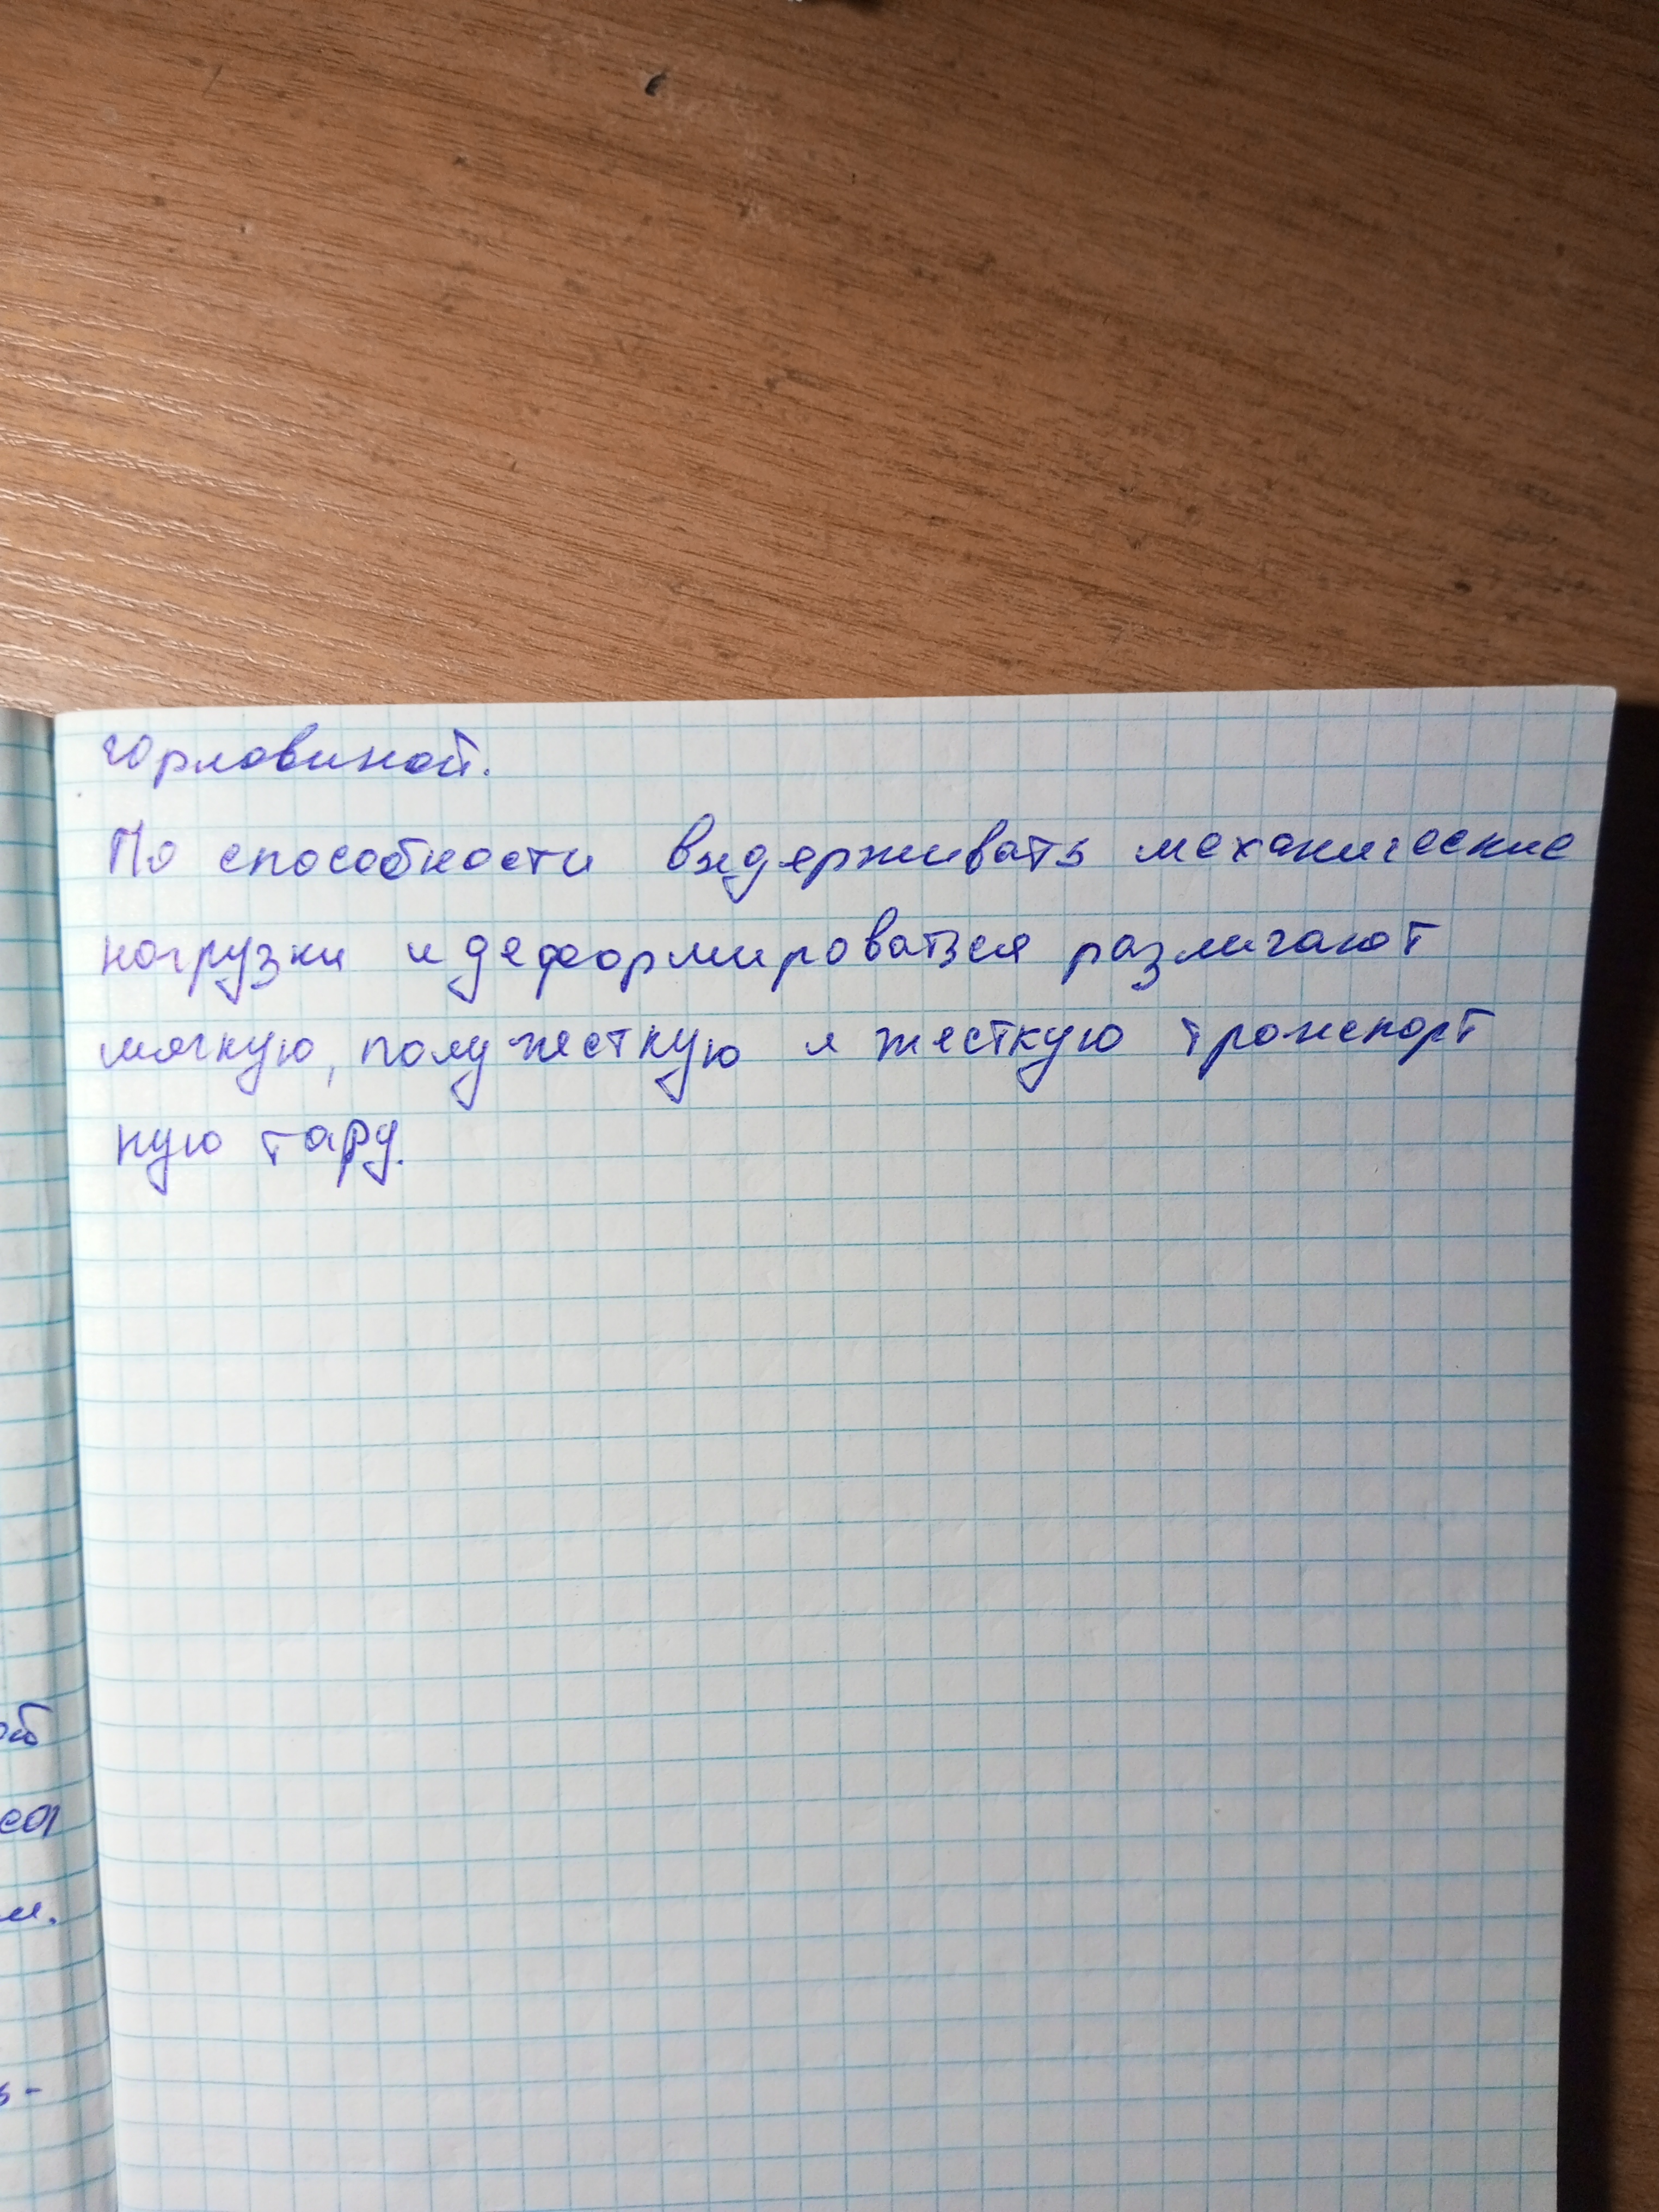 горловиной.
По способности выдерживать механические
нагрузки и деформироваться различают
мягкую, полужесткую и жесткую транспорт
ную тару.